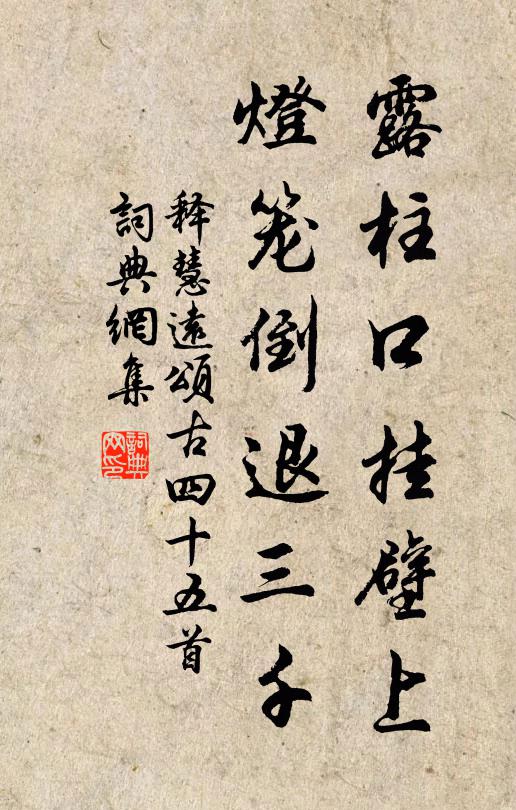 露柱口挂壁上
燈笼倒退三千
释慧遠頌古四十五首
詞典網集
詞典网印